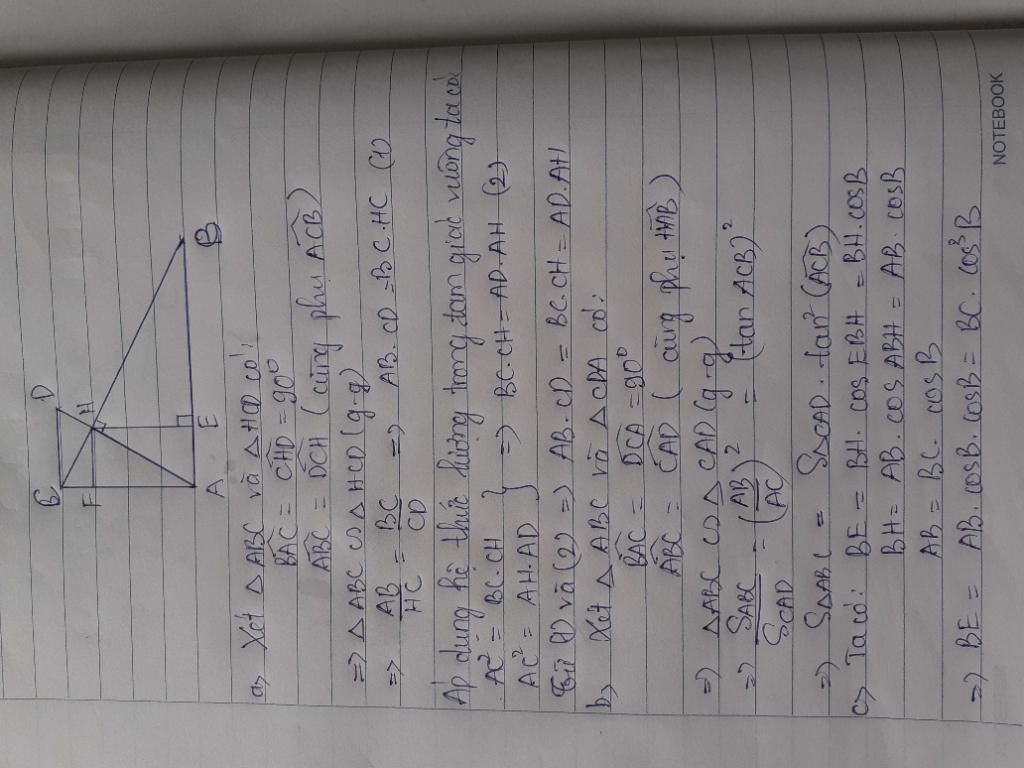 C
D
F
H
A
E
B
a> Xét △ABC và △HCD có:
BAC = CHD = 90⁰
ABC = DCH (cùng phụ ACB)
=> △ABC ∽ △HCD (g-g)
=> AB/HC = BC/CD => AB.CD = BC.HC (1)
Áp dụng hệ thức lượng trong tam giác vuông ta có:
AC² = BC.CH
AC² = AH.AD } => BC.CH = AD.AH (2)
Từ (1) và (2) => AB.CD = BC.CH = AD.AH
b> Xét △ABC và △CDA có:
BAC = DCA = 90⁰
ABC = CAD (cùng phụ HAB)
=> △ABC ∽ △CAD (g-g)
=> SABC/SCAD = (AB/AC)² = (tan ACB)²
=> S△ABC = S△CAD . tan² (ACB)
c> Ta có: BE = BH. cos EBH = BH. cosB
BH = AB. cos ABH = AB. cosB
AB = BC. cosB
=> BE = AB. cosB. cosB = BC. cos³B
NOTEBOOK